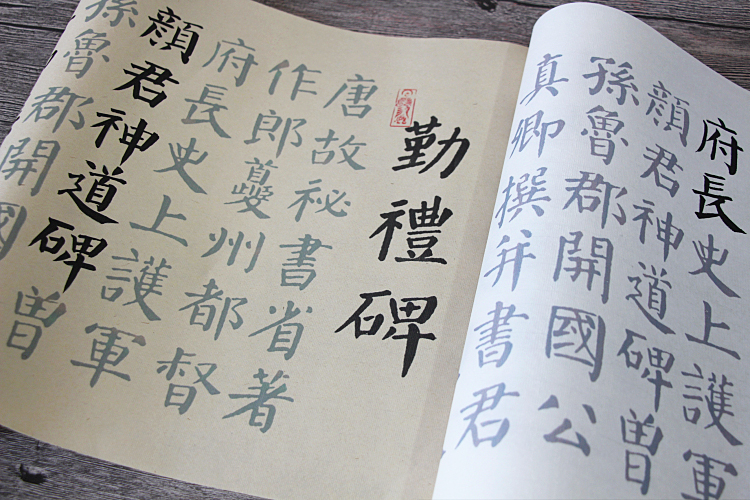 勤禮碑
唐故秘書省著
作郎夔州都督
府長史上護軍
顔君神道碑曾
孫魯郡開國
府長史上護軍
顔君神道碑曾
孫魯郡開國公
真卿撰并書君